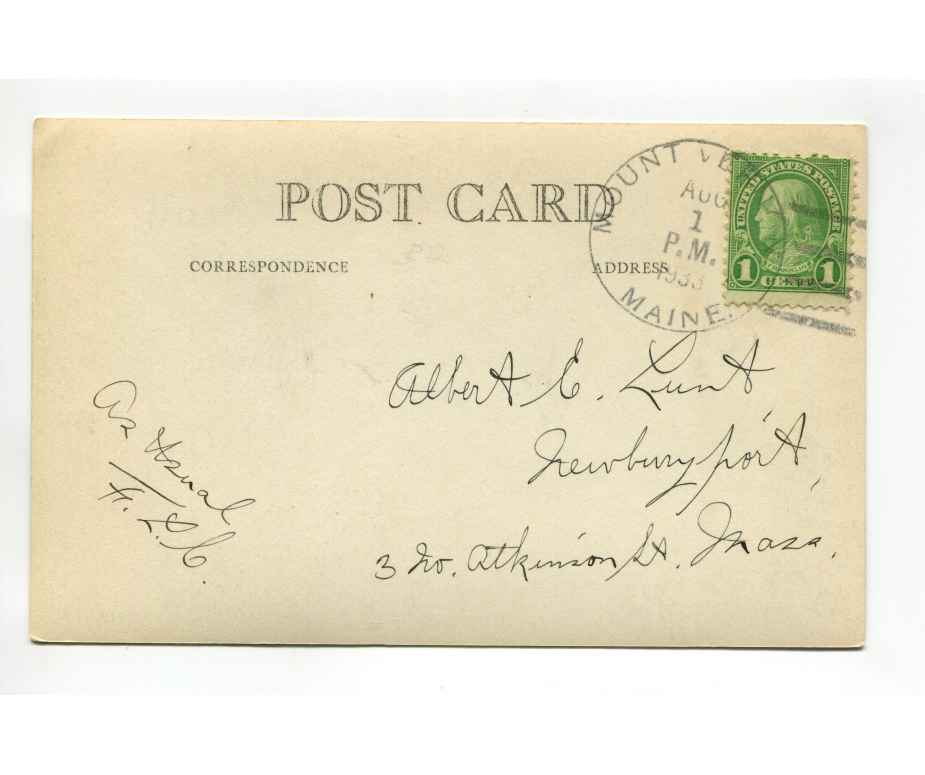 POST CARD
CORRESPONDENCE
ADDRESS
MOUNT VE
AUG
1
P.M.
1933
MAINE.
UNITED STATES POSTAGE
FRANKLIN
1 CENT 1
Albert E. Lunt
Newburyport,
3 No. Atkinson St. Mass.
As Usual
F. L. C.